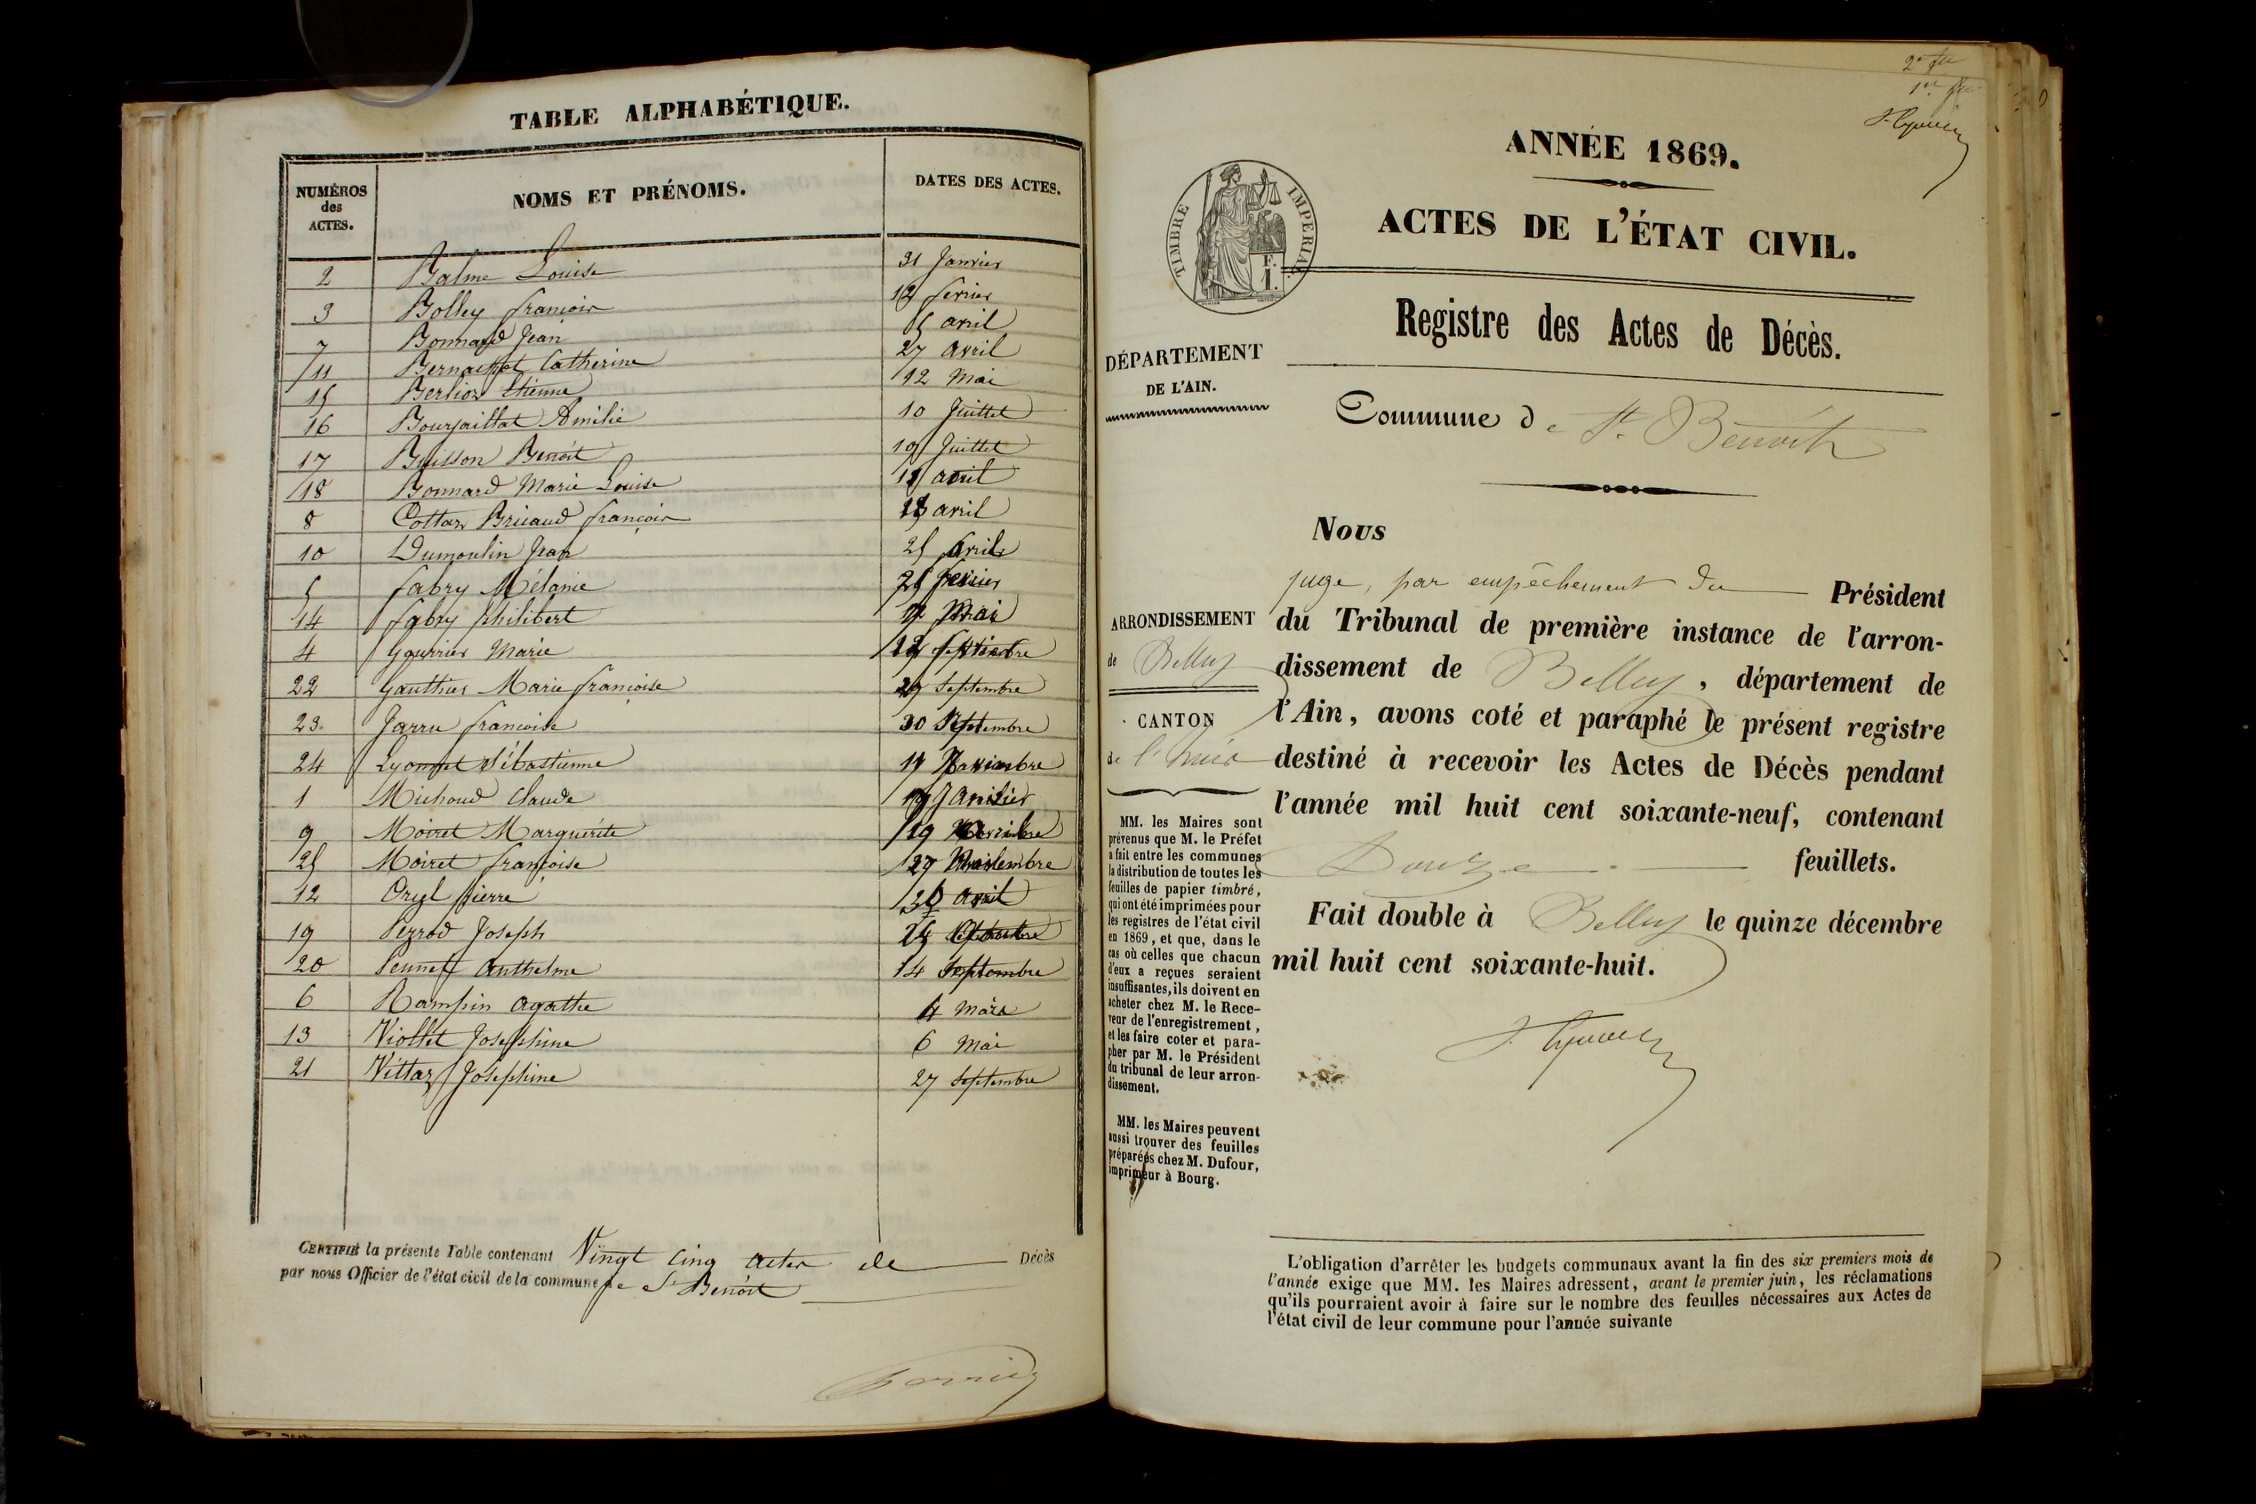 TABLE ALPHABÉTIQUE.
NUMÉROS des ACTES. NOMS ET PRÉNOMS. DATES DES ACTES.
2 Balme Louise 31 Janvier
3 Bolley françois 12 fevrier
7 Bonnard Jean 5 avril
11 Catherine 27 avril
15 Berlioz Etienne 12 Mai
16 Bourjaillat Amilie 10 Juillet
17 Buisson Benoît 19 Juillet
18 Bonnard Marie Louise
8 Cottaz Bricaud françois 13 avril
10 Dumoulin Jean 25 Avril
5 fabry Mélanie 25 fevrier
14 fabry philibert Mai
4 Gourrier Marie
22 Gauthier Marie françoise 29 Septembre
23. Jarru francoise 30 Septembre
24 Lyonnet Sébastienne 17 Novembre
1 Michoud Claude Janvier
9 Moiret Marguérite 19
25 Moiret françoise 27
12 Pierre 30 avril
19 Perrod Joseph
20 Anthelme 14 Septembre
6 Rampin Agathe 4 Mars
13 Viollet Josephine 6 Mai
21 Vittaz Josephine 27 Septembre
CERTIFIÉ la présente Table contenant Vingt Cinq actes de Décès
par nous Officier de l'état civil de la commune de St Benoît
2e ftet
1er ftet
ANNÉE 1869.
TIMBRE IMPERIAL
F.
1.
ACTES DE L'ÉTAT CIVIL.
Registre des Actes de Décès.
DÉPARTEMENT
DE L'AIN.
Commune de St. Benoît
Nous
juge, par empêchement du Président
ARRONDISSEMENT
de Belley
CANTON
de l'huis
du Tribunal de première instance de l'arron-
dissement de Belley, département de
l'Ain, avons coté et paraphé le présent registre
destiné à recevoir les Actes de Décès pendant
l'année mil huit cent soixante-neuf, contenant
Douze feuillets.
Fait double à Belley le quinze décembre
mil huit cent soixante-huit.
MM. les Maires sont
prévenus que M. le Préfet
a fait entre les communes
la distribution de toutes les
feuilles de papier timbré,
qui ont été imprimées pour
les registres de l'état civil
en 1869, et que, dans le
cas où celles que chacun
d'eux a reçues seraient
insuffisantes, ils doivent en
acheter chez M. le Rece-
veur de l'enregistrement,
et les faire coter et para-
pher par M. le Président
du tribunal de leur arron-
dissement.
MM. les Maires peuvent
aussi trouver des feuilles
préparées chez M. Dufour,
imprimeur à Bourg.
L'obligation d'arrêter les budgets communaux avant la fin des six premiers mois de
l'année exige que MM. les Maires adressent, avant le premier juin, les réclamations
qu'ils pourraient avoir à faire sur le nombre des feuilles nécessaires aux Actes de
l'état civil de leur commune pour l'année suivante